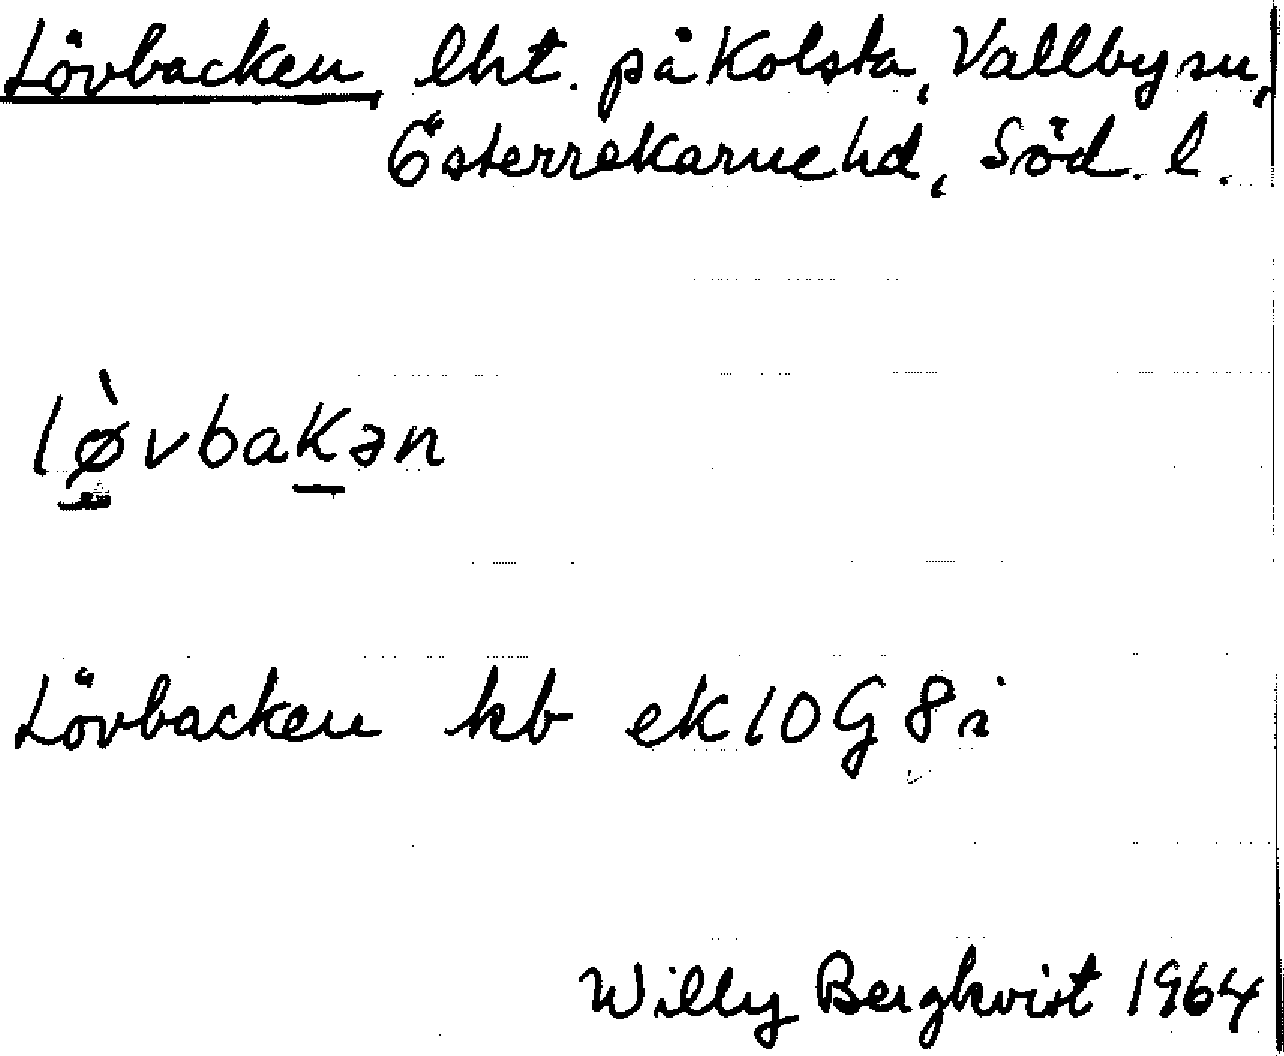 Lövbacken, lht. på Kolsta, Vallby sn,
Österrekarne hd, Söd. l.
lø̀vbakən
Lövbacken hb ek 10 G 8 i
Willy Bergkvist 1964